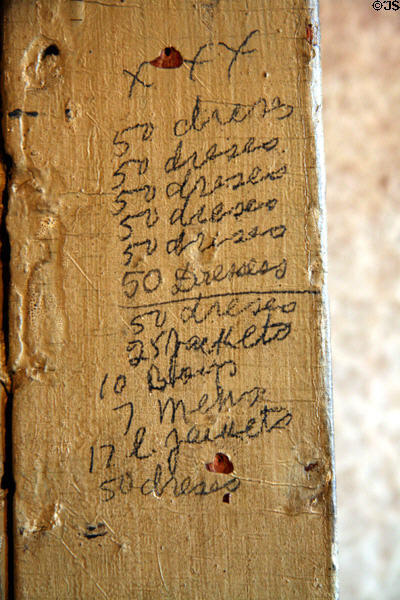 ©JS
x x x y
50 dress
50 dreses.
50 dreses
50 dreses
50 drisso
50 Dreses
50 dreses
25 Jackets
10 Boys
7 Mens
17 l. jackets
50 dreses